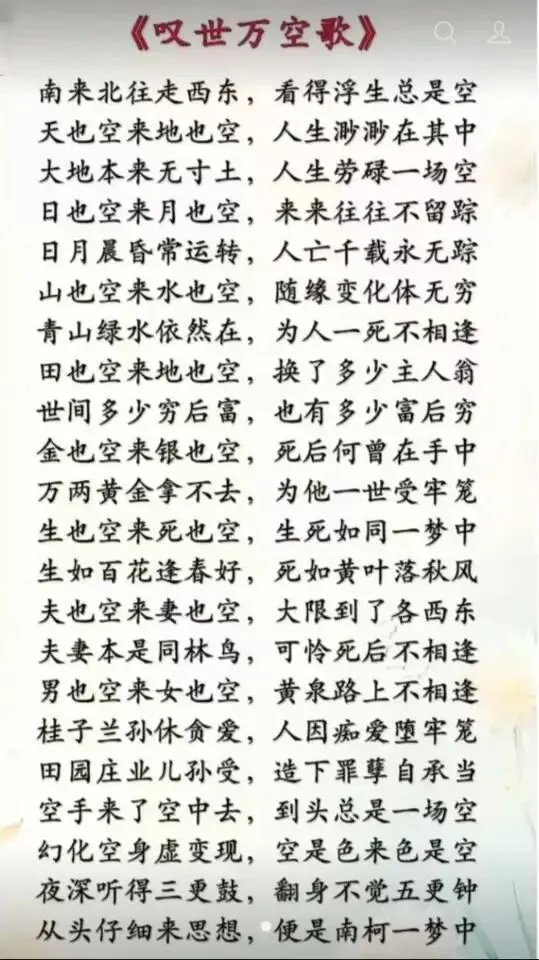 《叹世万空歌》
南来北往走西东，看得浮生总是空
天也空来地也空，人生渺渺在其中
大地本来无寸土，人生劳碌一场空
日也空来月也空，来来往往不留踪
日月晨昏常运转，人亡千载永无踪
山也空来水也空，随缘变化体无穷
青山绿水依然在，为人一死不相逢
田也空来地也空，换了多少主人翁
世间多少穷后富，也有多少富后穷
金也空来银也空，死后何曾在手中
万两黄金拿不去，为他一世受牢笼
生也空来死也空，生死如同一梦中
生如百花逢春好，死如黄叶落秋风
夫也空来妻也空，大限到了各西东
夫妻本是同林鸟，可怜死后不相逢
男也空来女也空，黄泉路上不相逢
桂子兰孙休贪爱，人因痴爱堕牢笼
田园庄业儿孙受，造下罪孽自承当
空手来了空中去，到头总是一场空
幻化空身虚变现，空是色来色是空
夜深听得三更鼓，翻身不觉五更钟
从头仔细来思想，便是南柯一梦中